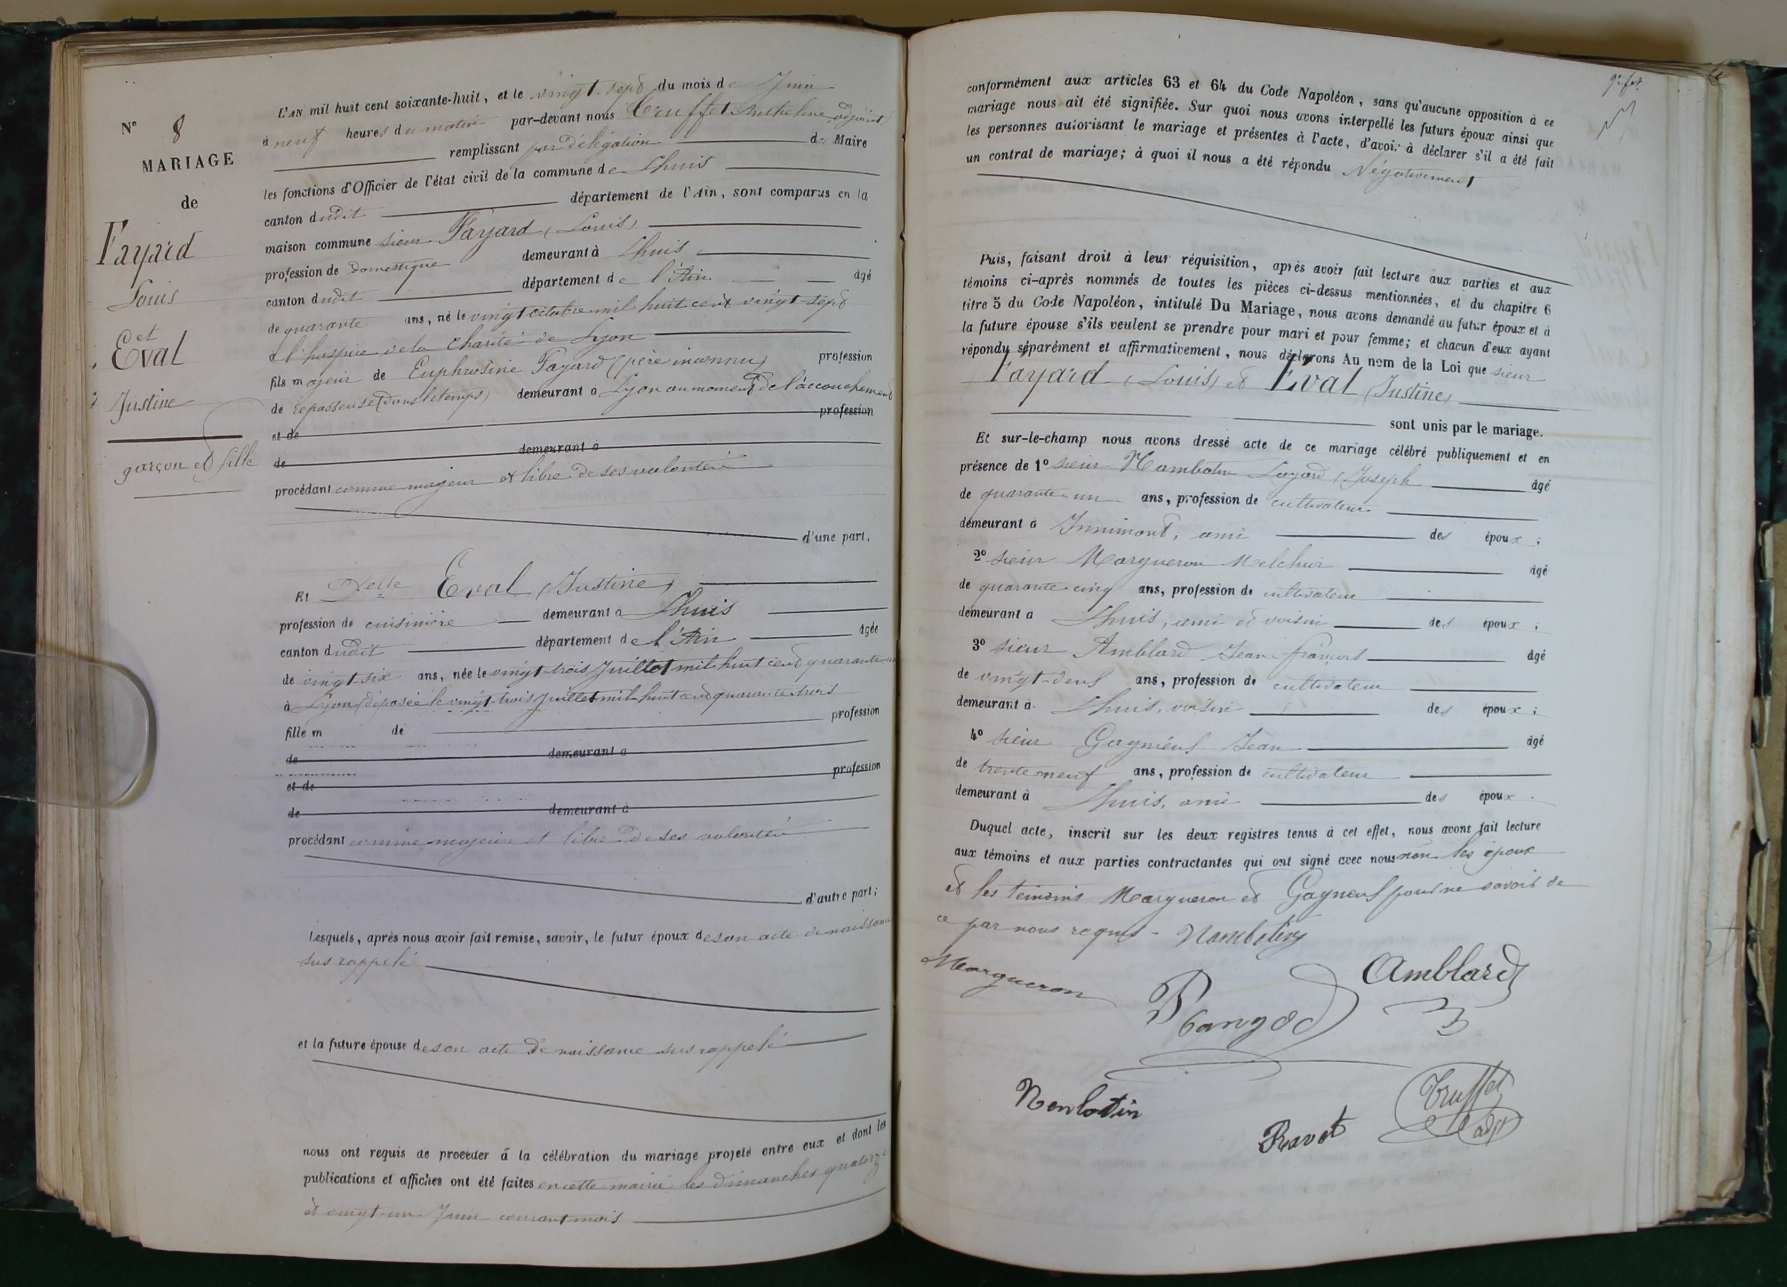 N° 8
MARIAGE
de
Fayard
Louis
et
Eval
Justine
garçon et fille
L'AN mil huit cent soixante-huit, et le vingt-sept du mois de Juin
à neuf heures du matin par-devant nous Truffet Anthelme adjoint
remplissant par délégation de Maire
les fonctions d'Officier de l'état civil de la commune de Lhuis
canton dudit département de l'Ain, sont comparus en la
maison commune sieur Fayard (Louis)
profession de Domestique demeurant à Lhuis
canton dudit département de l'Ain âgé
de quarante ans, né le vingt octobre mil huit cent vingt-sept
à l'hospice de la Charité de Lyon
fils majeur de Euphrosine Fayard (père inconnu) profession
de repasseuse (dans le temps) demeurant à Lyon au moment de l'accouchement
et de profession
de demeurant à
procédant comme majeur et libre de ses volontés
d'une part.
Et Delle Eval (Justine)
profession de cuisinière demeurant à Lhuis
canton dudit département de l'Ain âgée
de vingt-six ans, née le vingt-trois Juillet mil huit cent quarante
à Lyon (déposée le vingt-trois Juillet mil huit cent quarante-trois
fille m de profession
de demeurant à
et de profession
de demeurant à
procédant comme majeure et libre de ses volontés
d'autre part;
Lesquels, après nous avoir fait remise, savoir, le futur époux de son acte de naissance
sus rappelé
et la future épouse de son acte de naissance sus rappelé
nous ont requis de procéder à la célébration du mariage projeté entre eux et dont les
publications et affiches ont été faites en cette mairie les dimanches quatorze
et vingt-un Juin courant mois
conformément aux articles 63 et 64 du Code Napoléon, sans qu'aucune opposition à ce
mariage nous ait été signifiée. Sur quoi nous avons interpellé les futurs époux ainsi que
les personnes autorisant le mariage et présentes à l'acte, d'avoir à déclarer s'il a été fait
un contrat de mariage; à quoi il nous a été répondu Négativement
Puis, faisant droit à leur réquisition, après avoir fait lecture aux parties et aux
témoins ci-après nommés de toutes les pièces ci-dessus mentionnées, et du chapitre 6
titre 5 du Code Napoléon, intitulé Du Mariage, nous avons demandé au futur époux et à
la future épouse s'ils veulent se prendre pour mari et pour femme; et chacun d'eux ayant
répondu séparément et affirmativement, nous déclarons Au nom de la Loi que sieur
Fayard (Louis) et Eval (Justine)
sont unis par le mariage.
Et sur-le-champ nous avons dressé acte de ce mariage célébré publiquement et en
présence de 1° sieur Joseph âgé
de quarante-un ans, profession de cultivateur
demeurant à Innimont, ami des époux;
2° sieur Margueron Melchior âgé
de quarante cinq ans, profession de cultivateur
demeurant à Lhuis, ami et voisin des époux;
3° sieur Amblard Jean-françois âgé
de vingt-deux ans, profession de cultivateur
demeurant à Lhuis, voisin des époux;
4° sieur Gagneux Jean âgé
de trente neuf ans, profession de cultivateur
demeurant à Lhuis, ami des époux.
Duquel acte, inscrit sur les deux registres tenus à cet effet, nous avons fait lecture
aux témoins et aux parties contractantes qui ont signé avec nous non les époux
et les témoins Margueron et Gagneux pour ne savoir de
ce par nous requis
Margueron
Amblard
Truffet
adjt
Ravet